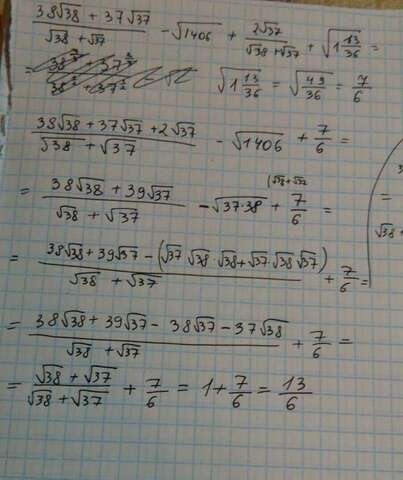 (38√38 + 37√37)/(√38 + √37) - √1406 + 2√37/(√38+√37) + √(1 13/36) =
√(1 13/36) = √(49/36) = 7/6
(38√38 + 37√37 + 2√37)/(√38 + √37) - √1406 + 7/6 =
= (38√38 + 39√37)/(√38 + √37) - √(37·38) + 7/6 =
= (38√38 + 39√37 - (√37 √38·√38 + √37·√38 √37))/(√38 + √37) + 7/6 =
= (38√38 + 39√37 - 38√37 - 37√38)/(√38 + √37) + 7/6 =
= (√38 + √37)/(√38 + √37) + 7/6 = 1 + 7/6 = 13/6